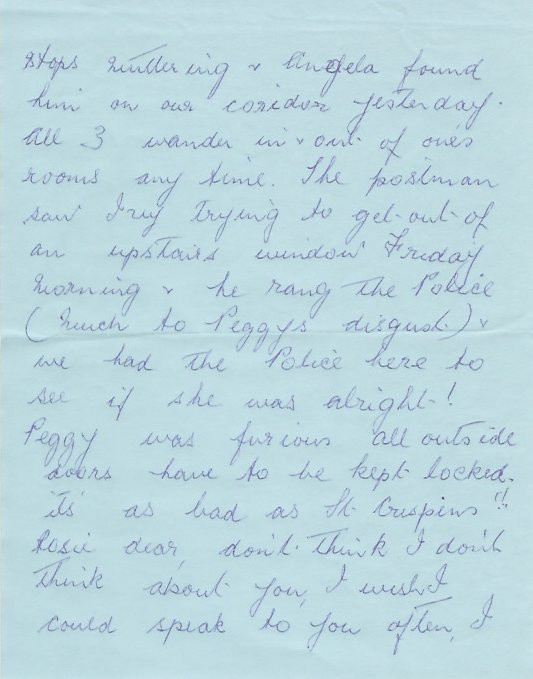 stops muttering & Angela found
him on our coridor yesterday.
All 3 wander in & out of one's
rooms any time. The postman
saw Ivy trying to get out of
an upstairs window Friday
morning & he rang the Police
(much to Peggys disgust) &
we had the Police here to
see if she was alright!
Peggy was furious all outside
doors have to be kept locked.
its as bad as St. Crispins!!
Rosie dear, don't think I don't
think about you, I wish I
could speak to you often, I